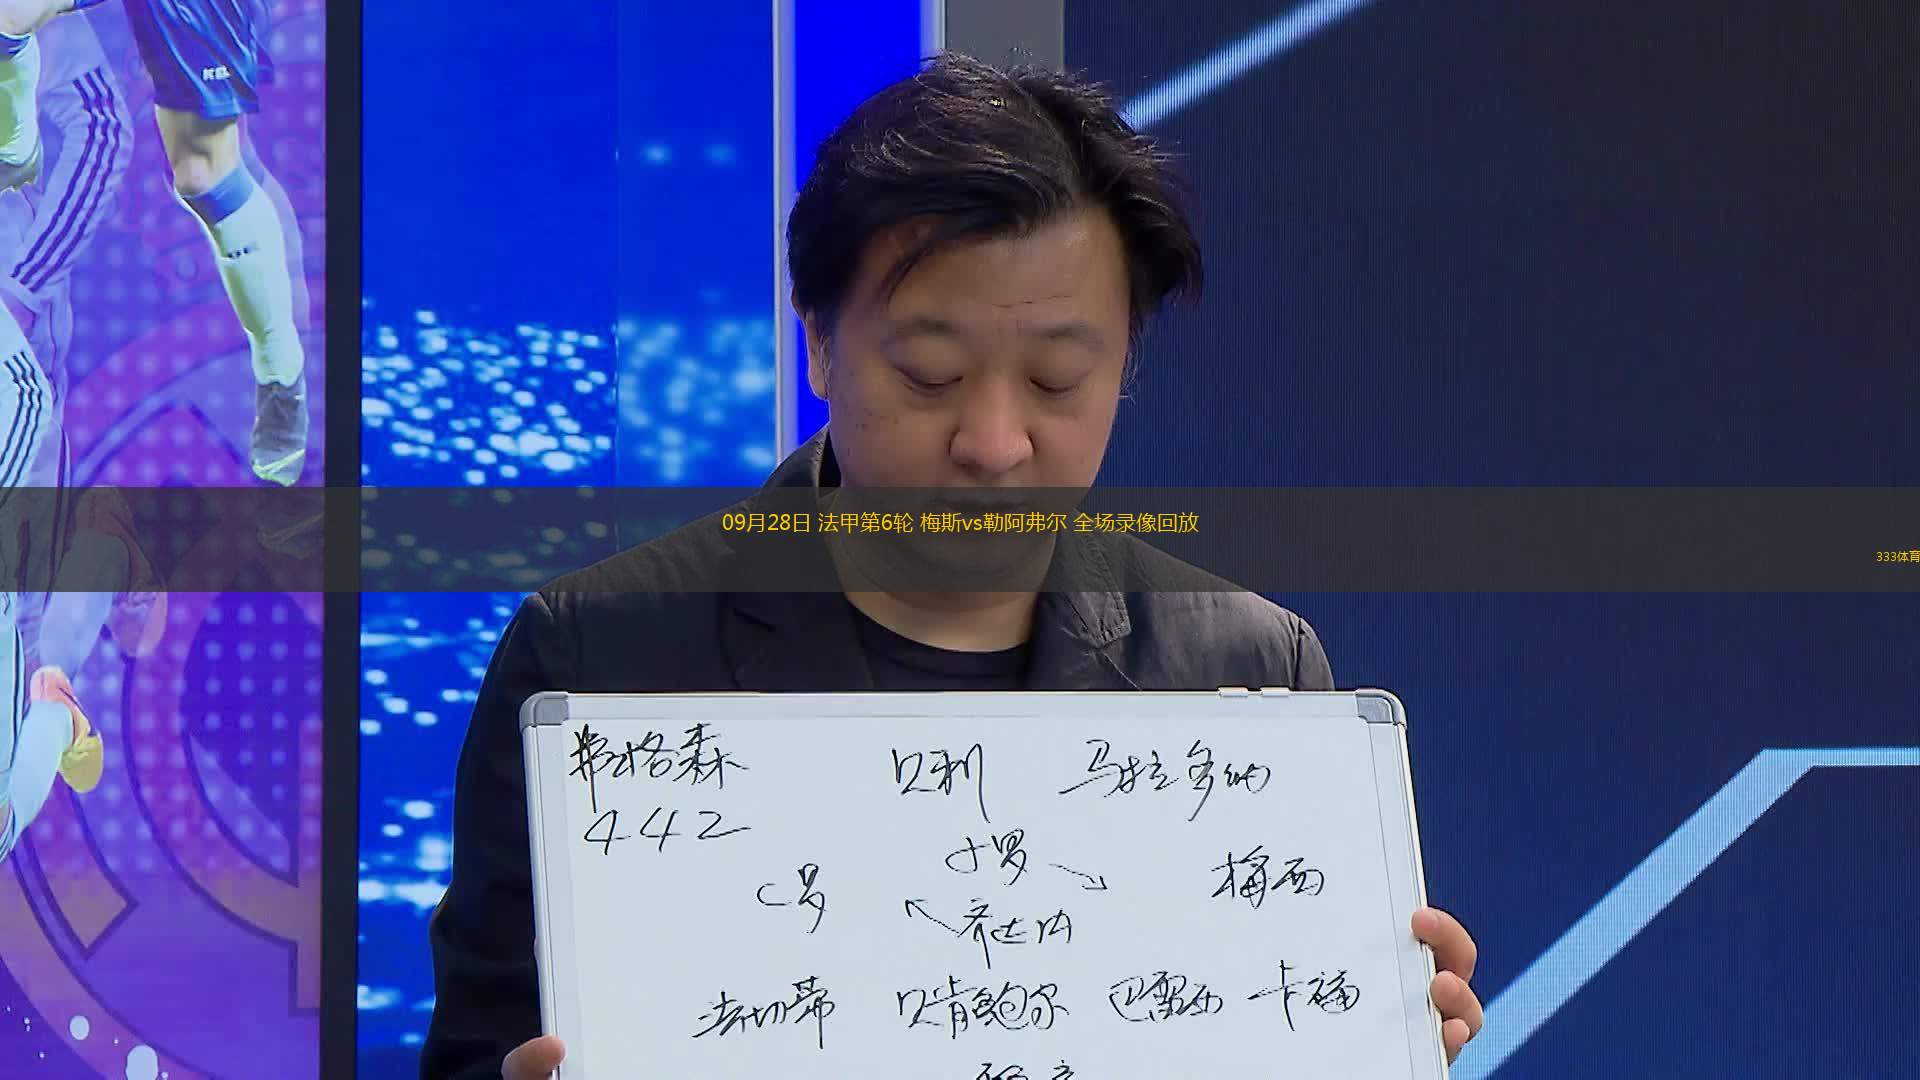 09月28日 法甲第6轮 梅斯vs勒阿弗尔 全场录像回放
333体育
弗格森 贝利 马拉多纳
442
小罗
C罗 梅西
齐达内
法切蒂 贝肯鲍尔 巴雷西 卡福